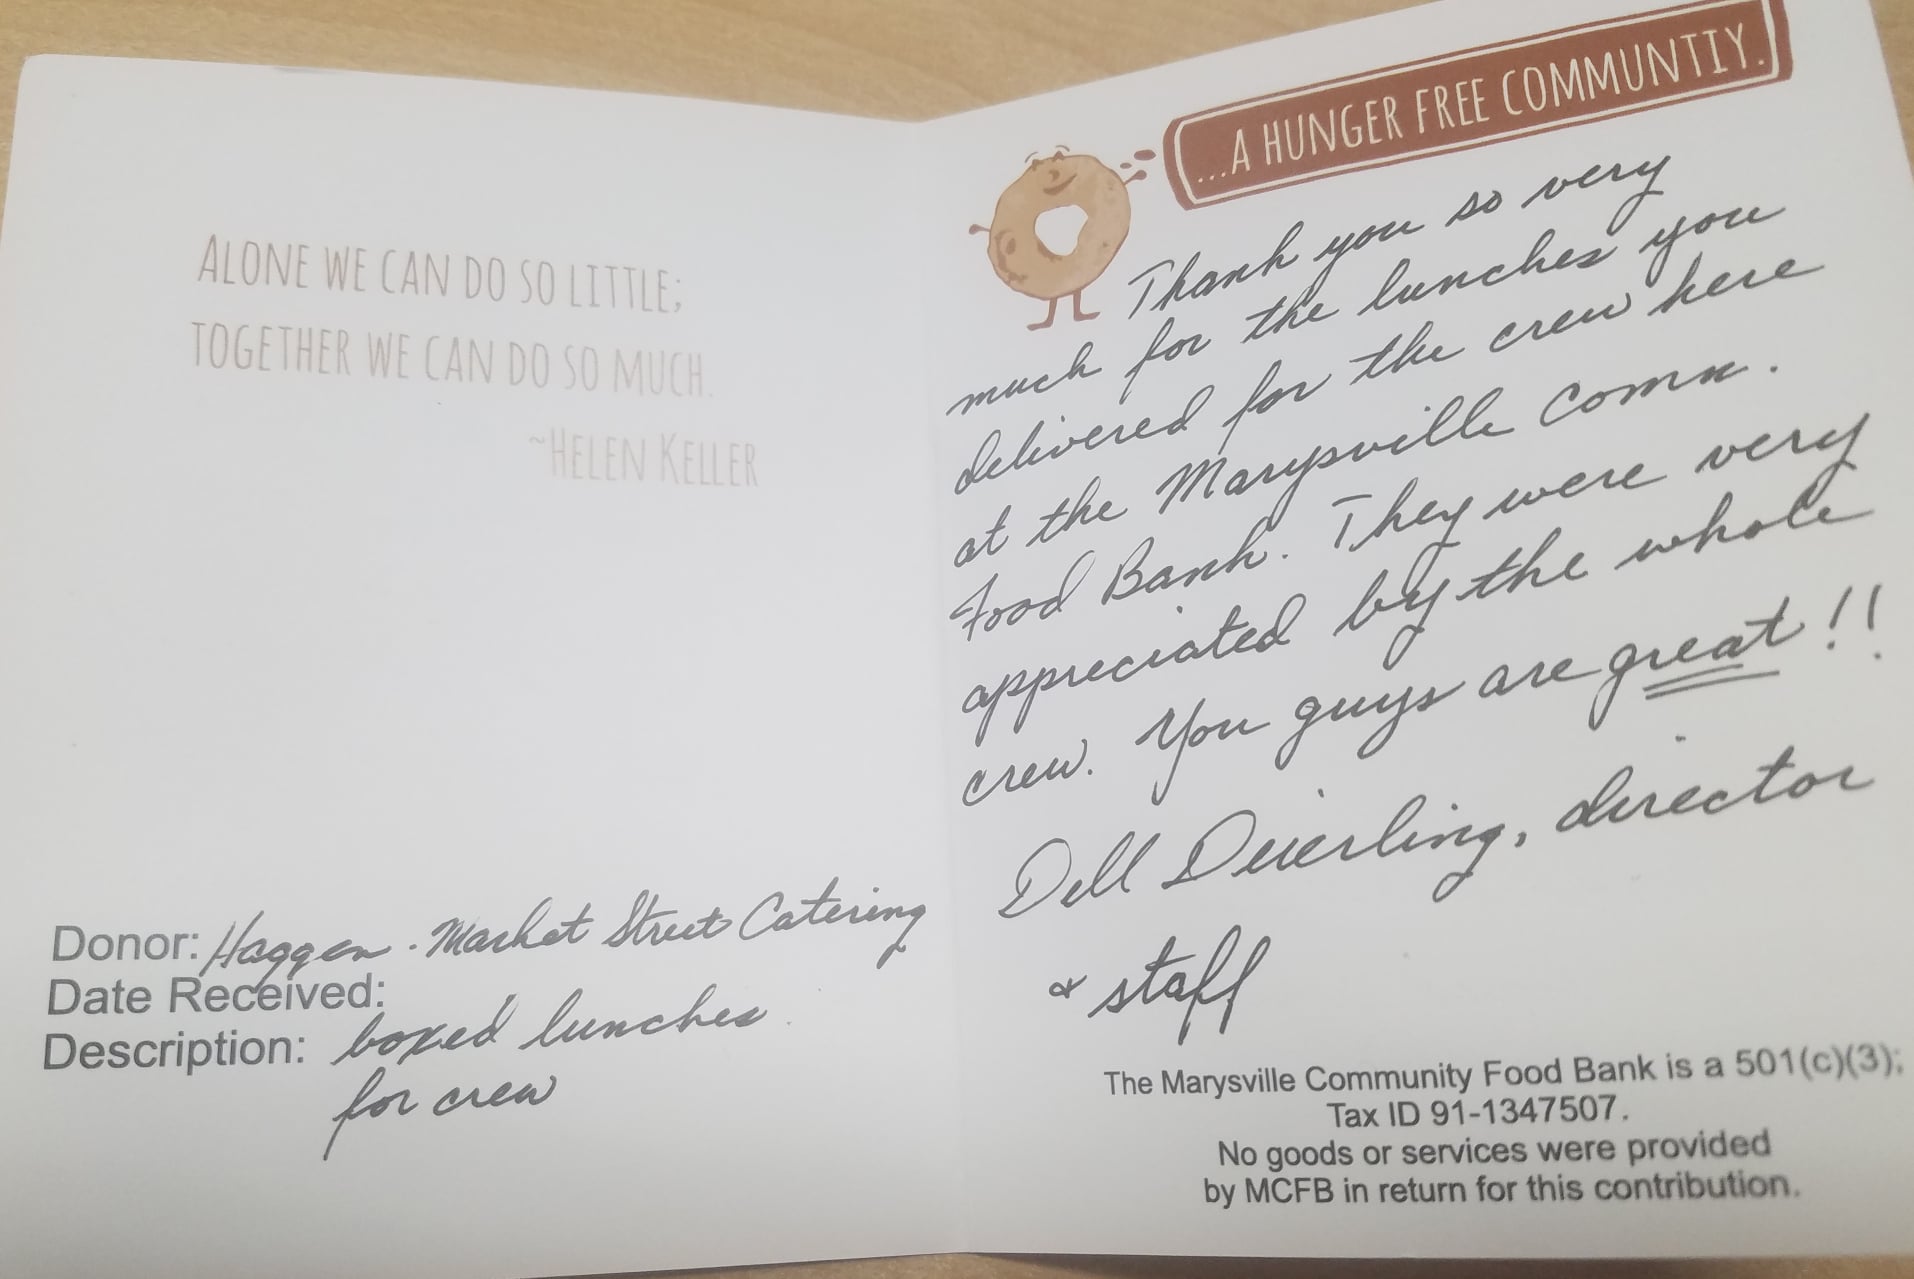 ALONE WE CAN DO SO LITTLE;
TOGETHER WE CAN DO SO MUCH.
~HELEN KELLER
Donor: Haggen - Market Street Catering
Date Received:
Description: boxed lunches
for crew
...A HUNGER FREE COMMUNTIY.
Thank you so very
much for the lunches you
delivered for the crew here
at the Marysville Comm.
Food Bank. They were very
appreciated by the whole
crew. You guys are great!!
Dell Deierling, director
& staff
The Marysville Community Food Bank is a 501(c)(3);
Tax ID 91-1347507.
No goods or services were provided
by MCFB in return for this contribution.